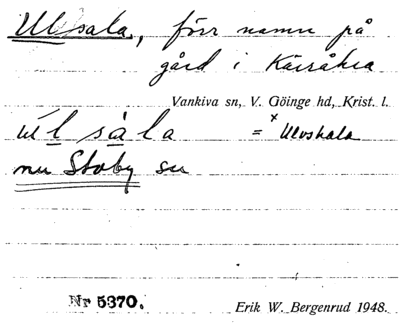 Ullsala, förr namn på
gård i Kärråkra
Vankiva sn, V. Göinge hd, Krist. l.
ùl l s à l a = × Ulvshala
nu Stoby sn
Nr 5370.
Erik W. Bergenrud 1948.